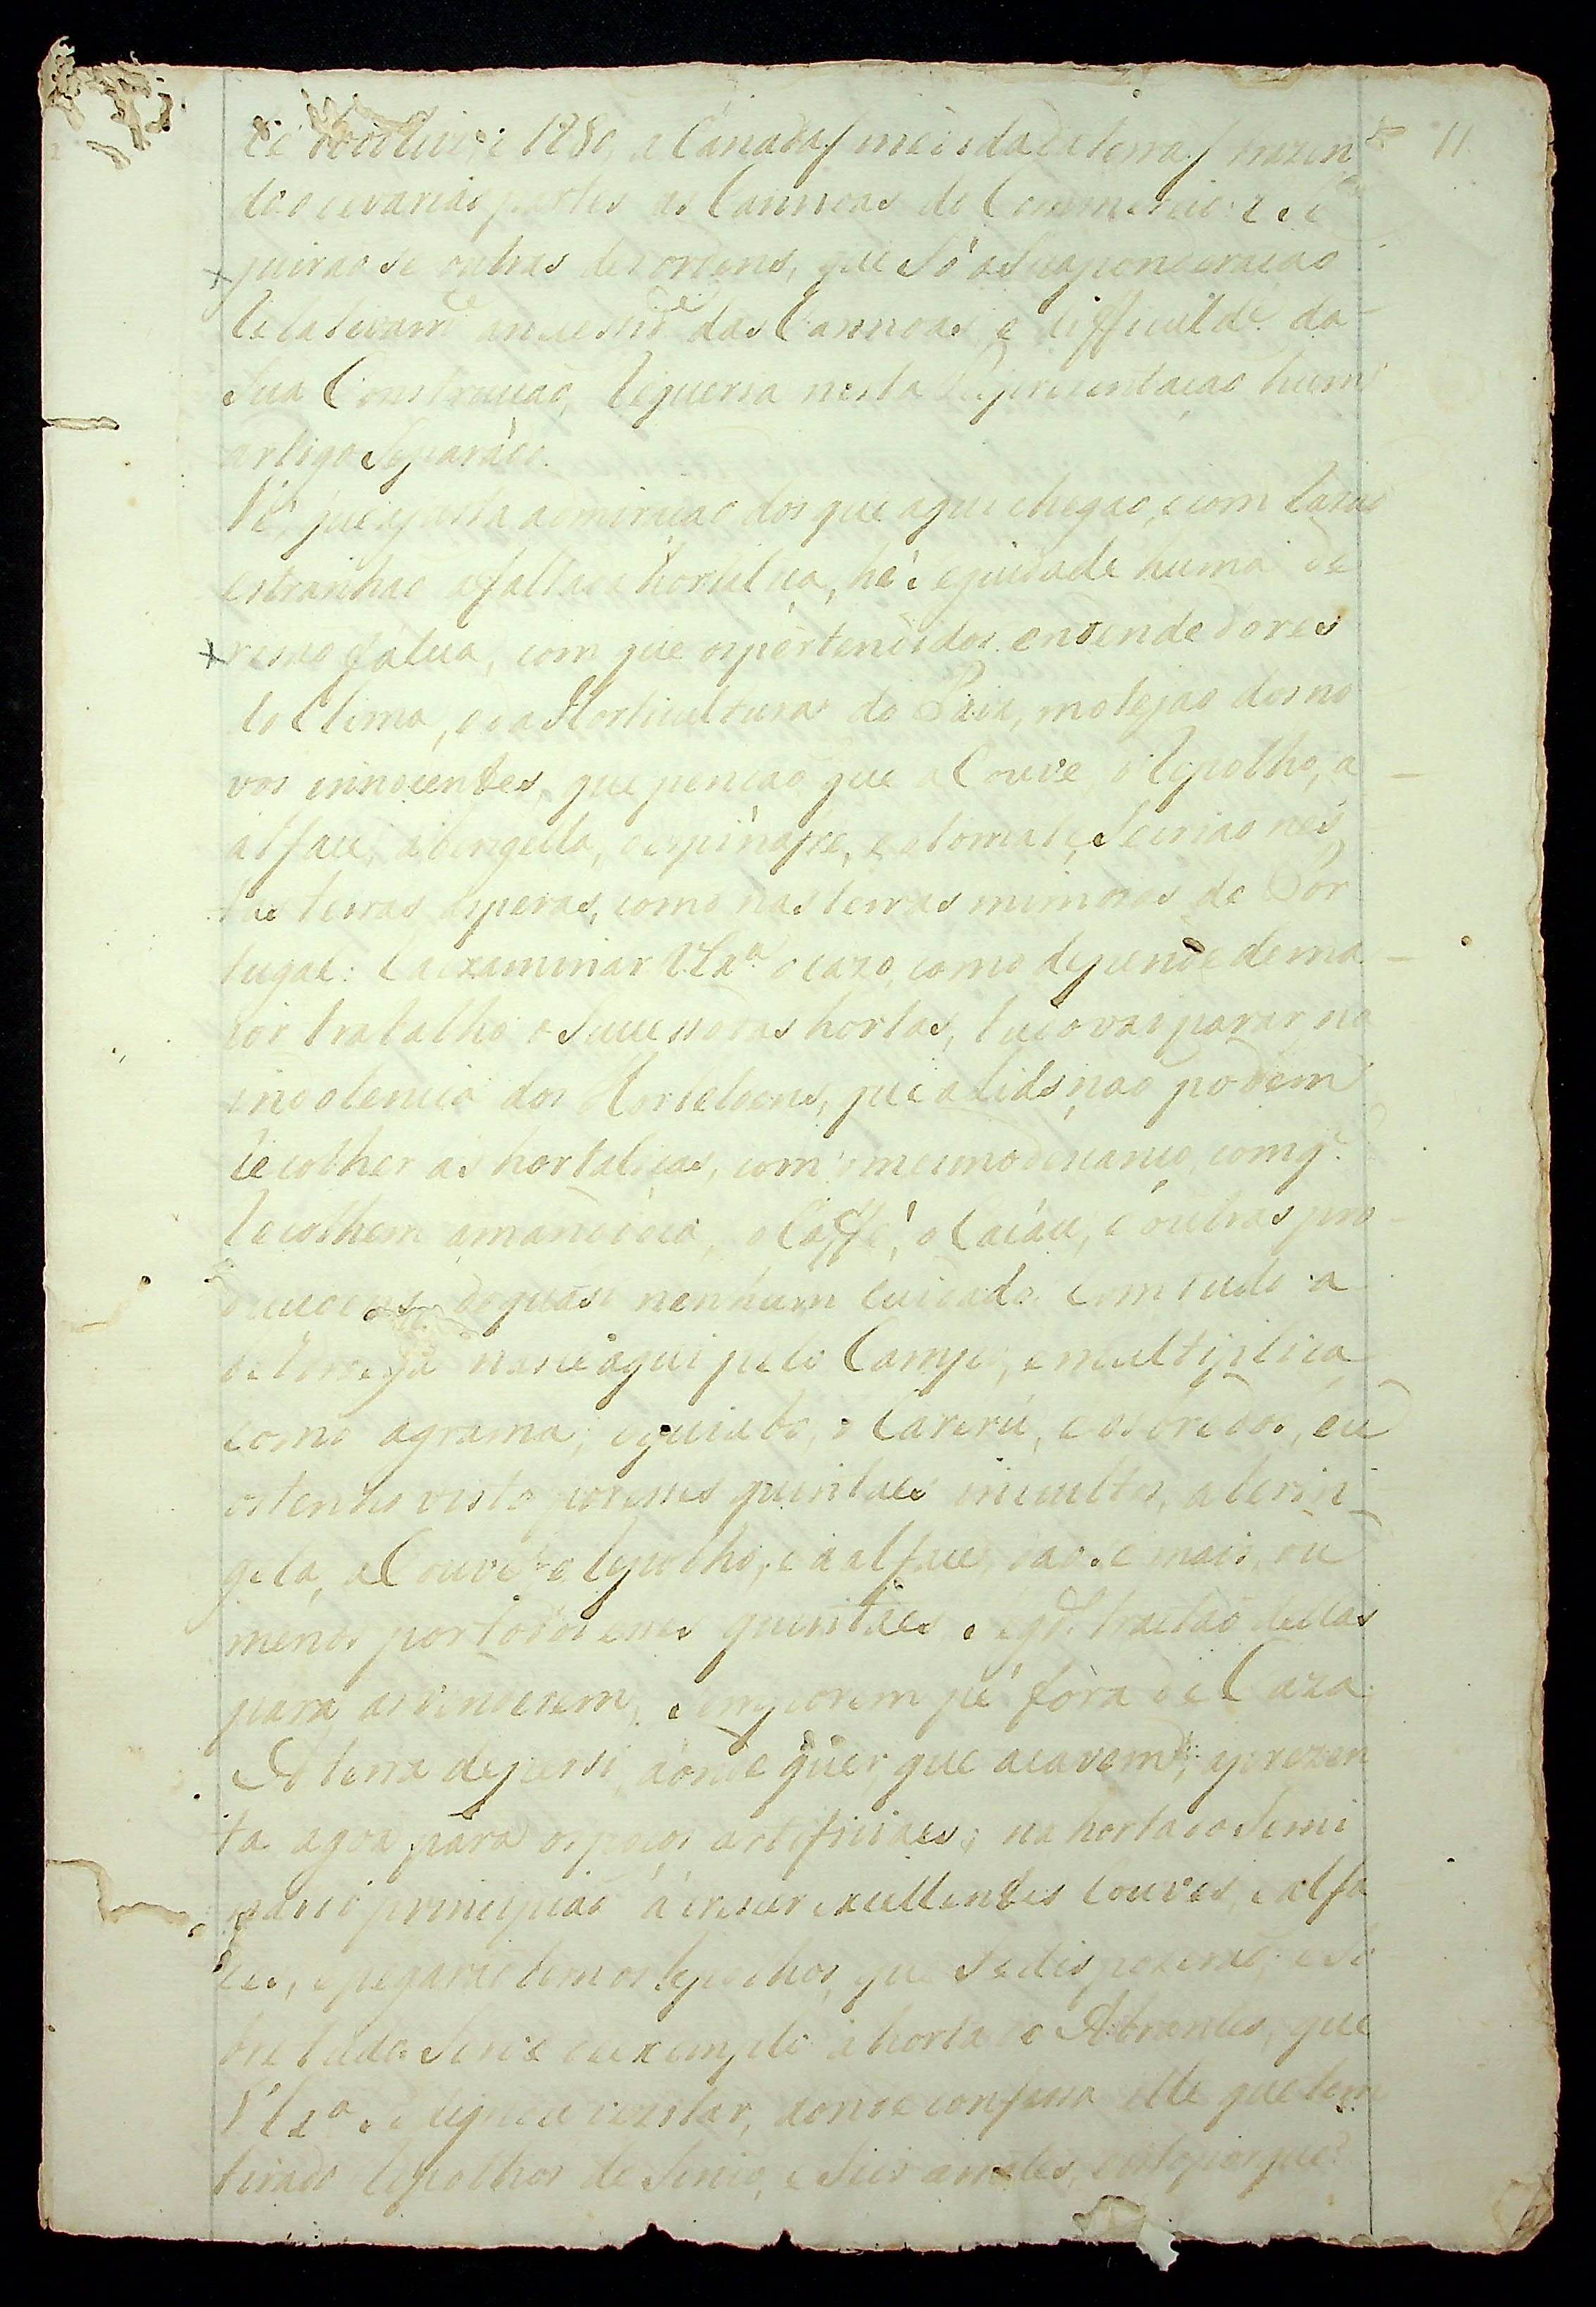 11
de 1280, a Canada / meio da da terra / trazen
do de varias partes as Cannoas do Commercio: e Se
guirão se outras desordens, que Só a Sua ponderação
Relativam.e ao das Cannoas, e difficuld.e da
Sua Construcção, Requeria nesta Representação hum
artigo Separado.
He, que a admiração dos que aqui chegão, e com razão
estranhão a falta da hortaliça, he seguida de huma de
riso fatua, com que os pertendidos entendedores
do Clima, e da Horticultura do Paiz, motejão dos no
vos innocentes, que pensão que a Couve, o Repolho, a
alface, a beringela, o espinafre, e o tomate, Se crião nes
tas terras asperas, como nas terras mimosas de Por
tugal: E a examinar V. Ex.a o cazo, como depende de ma
ior trabalho o Successo das hortas, tudo vai parar na
indolencia dos Horteloens, que aliás não podem
Recolher as hortaliças, com o mesmo descanço, com q.
Recolhem a mandioca, o Caffé, o Cacáu, e outras pro
ducçoens de quasi nenhum cuidado. Com tudo a
beldroega nasce aqui pelo Campo, e multiplica
como a grama; o quiabo, o Carurú, e os bredos, eu
os tenho visto por esses quintaes incultos, a berin
gela, a Couve, o Repolho, e a alface, são mais, ou
menos por todos esses quintaes, e q.m tractão dellas
para as venderem, Sem porem pé fóra de Caza.
A terra de per si, aonde quer, que a cavem, aprezen
ta agoa para os poços artificiaes; na horta do Semi
nario principião a crescer excellentes Couves, e alfa
ces, e pegarão bem os Repolhos, que Se dispozerão, e So
bre tudo Sirva de exemplo a horta do Abrantes, que
V. Ex.a Se dignou vezitar, aonde confessa elle que tem
tirado Repolhos de Sinco, e Seis arrates, e isto porque?